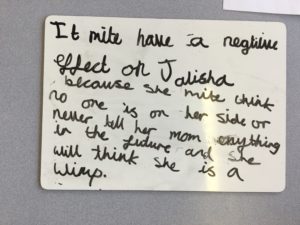 It mite have a negtive
effect on Jalisha
because she mite think
no one is on her side or
never tell her mom anything
in the future and she
will think she is a
wimp.